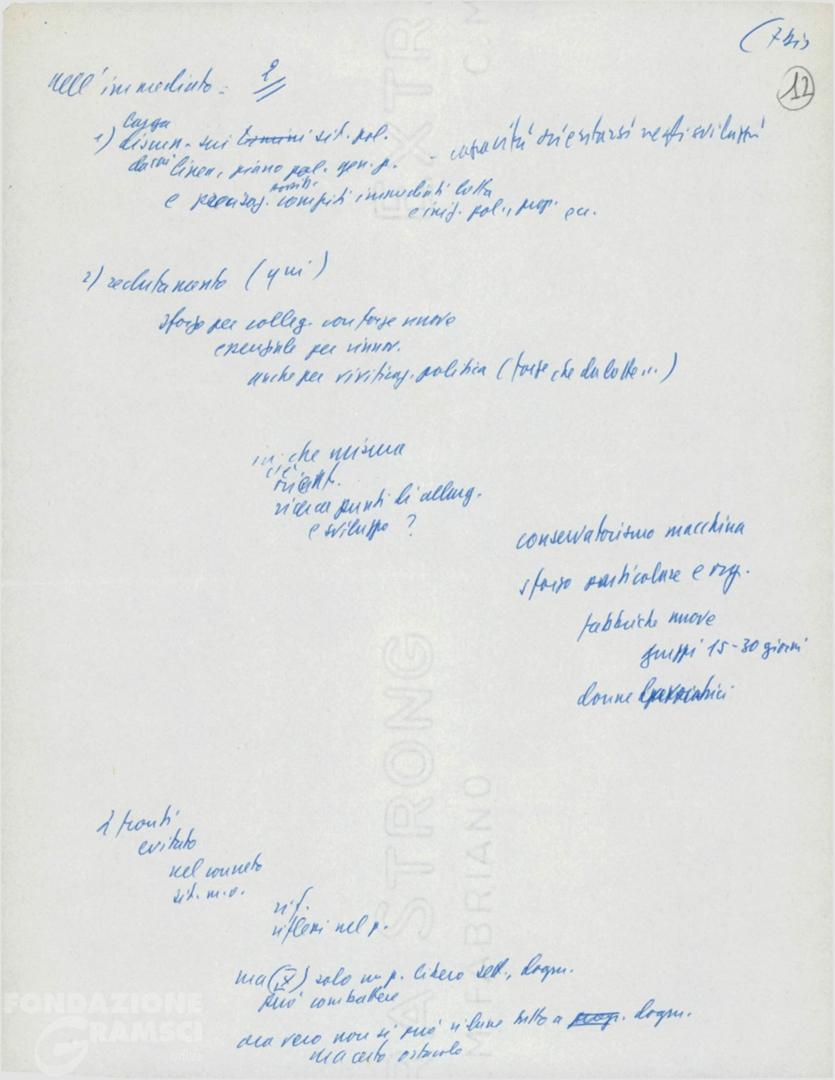 (7 bis
12
nell'immediato = 2
larga
1) discus. sui sit. pol.
linea, piano pol. gen. p. - capacità orientarsi negli sviluppi
e compiti immediati lotta
e iniz. pol., prop. ecc.
2) reclutamento (qui)
sforzo per colleg. con forze nuove
essenziale per rinnov.
anche per vivificaz. politica (forze che da lotte...)
in che misura
c'è
orient.
ricerca punti di allarg.
e sviluppo?
conservatorismo macchina
sforzo particolare e org.
fabbriche nuove
gruppi 15-30 giorni
donne
2 fronti
evitato
nel concreto
sit. m.o.
rif.
riflessi nel p.
ma (X) solo un p. libero sett., dogm.
può combattere
ma vero non si può ridurre tutto a dogm.
ma certo ostacolo
STRONG
FABRIANO
EXTR
C.M
FONDAZIONE
GRAMSCI